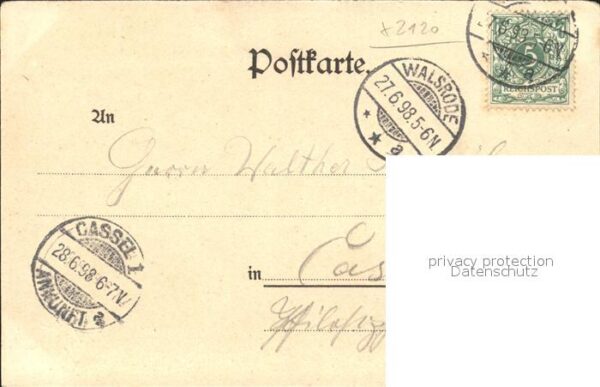 x2120
Postkarte.
WALSRODE
27.6.98.5-6N.
a
5
REICHSPOST
An
Herrn Walther
CASSEL 1
28.6.98.6-7N.
ANKUNFT. a
in
privacy protection
Datenschutz